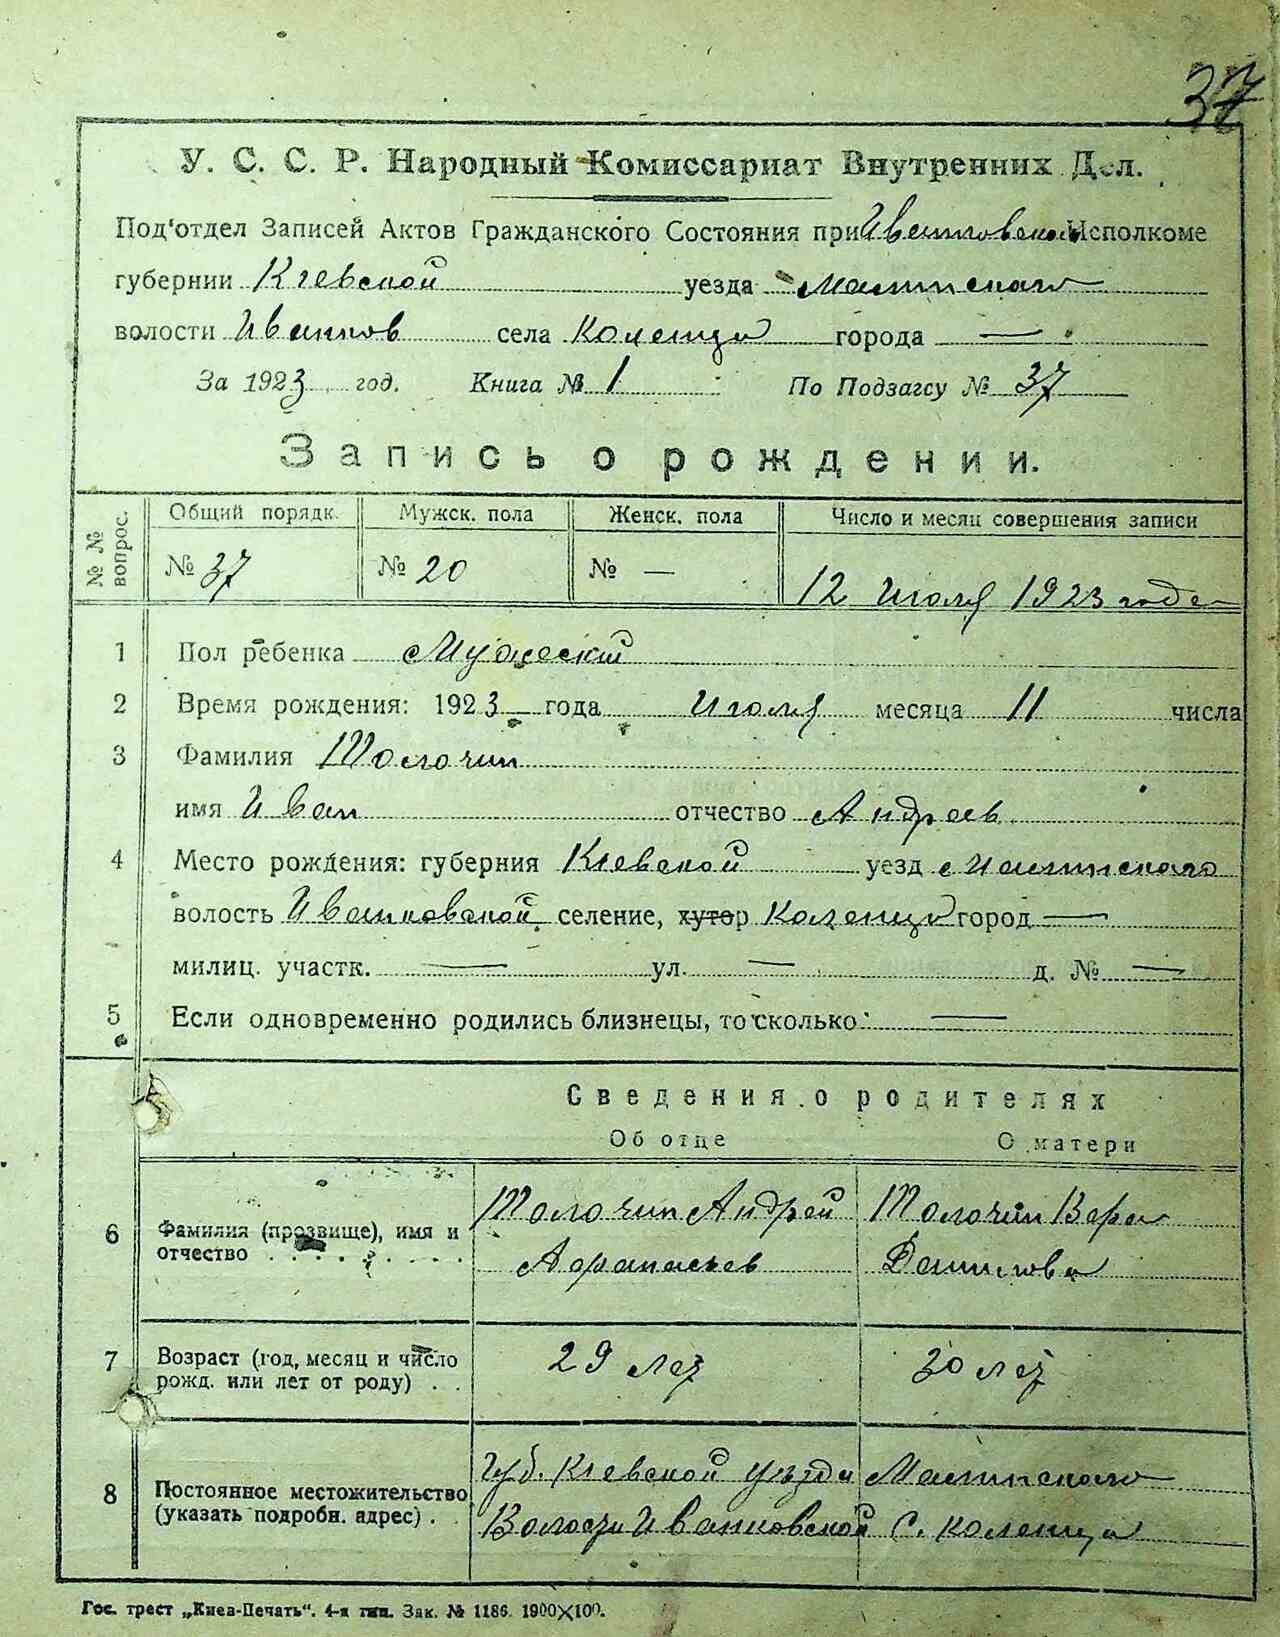 37
У. С. С. Р. Народный Комиссариат Внутренних Дел.
Под'отдел Записей Актов Гражданского Состояния при Иванковском Исполкоме
губернии Киевской уезда Малинского
волости Иванков села Коленци города —
За 1923 год. Книга № 1 По Подзагсу № 37
Запись о рождении.
№№ вопрос. Общий порядк. Мужск. пола Женск. пола Число и месяц совершения записи
№ 37 № 20 № — 12 Июля 1923 года
1 Пол ребенка Мужеский
2 Время рождения: 1923 года Июля месяца 11 числа
3 Фамилия Толочин
имя Иван отчество Андреев
4 Место рождения: губерния Киевской уезд Малинского
волость Иванковской селение, хутор Коленци город —
милиц. участк. — ул. — д. № —
5 Если одновременно родились близнецы, то сколько: —
Сведения о родителях
Об отце О матери
6 Фамилия (прозвище), имя и Толочин Андрей Толочин Вера
отчество . . . . . . . . Афанасьев Данилова
7 Возраст (год, месяц и число 29 лет 30 лет
рожд. или лет от роду) . .
8 Постоянное местожительство Губ. Киевской уезда Малинского
(указать подробн. адрес) . Волости Иванковской с. Коленци
Гос. трест „Киев-Печать“. 4-я тип. Зак. № 1186. 1900×100.